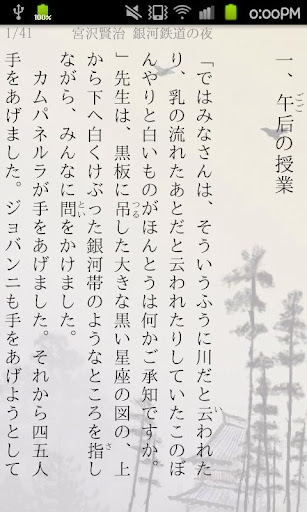 100%
0:00PM
1/41
宮沢賢治 銀河鉄道の夜
一、午后の授業
ごご
「ではみなさんは、そういうふうに川だと云われた
い
り、乳の流れたあとだと云われたりしていたこのぼ
んやりと白いものがほんとうは何かご承知ですか。
」先生は、黒板に吊した大きな黒い星座の図の、上
つる
から下へ白くけぶった銀河帯のようなところを指し
さ
ながら、みんなに問をかけました。
とい
カムパネルラが手をあげました。それから四五人
手をあげました。ジョバンニも手をあげようとして